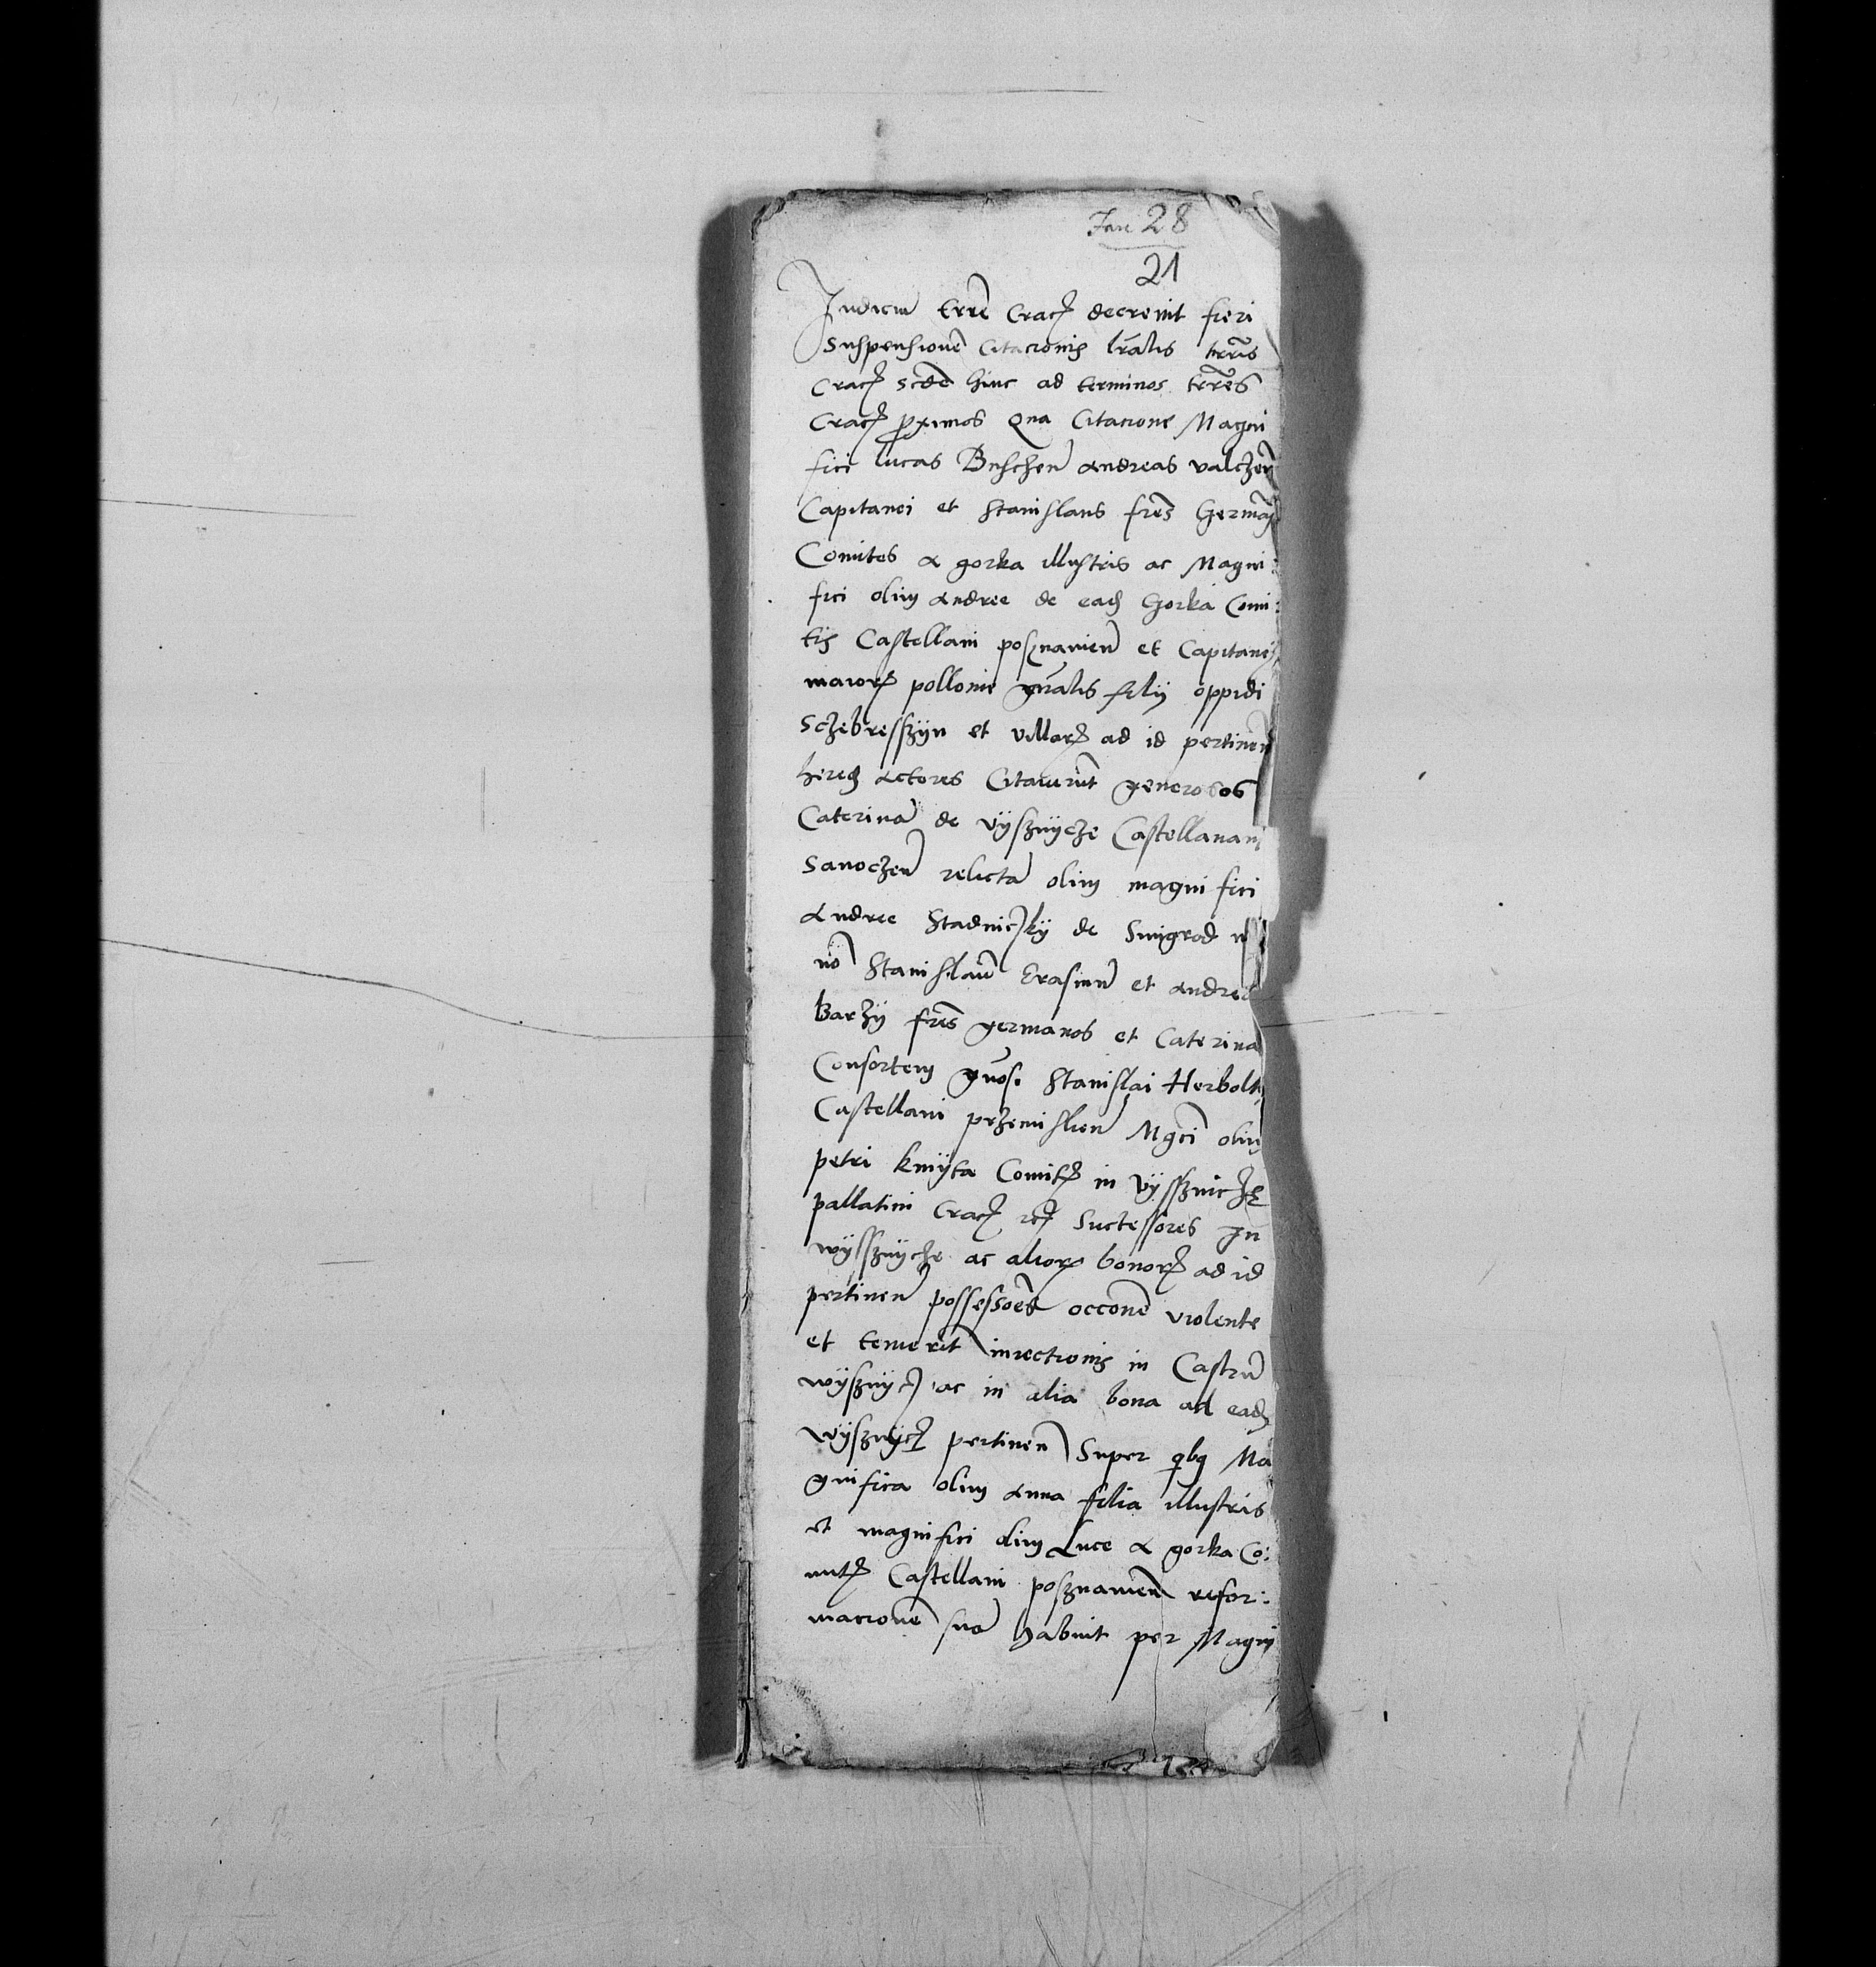 Jan 28
21
Judiciu terre Cracʒ decrevit fieri
Suspensione Citacionis lralis terris
Cracʒ scde hinc ad terminos terres
Cracʒ proximos Qua Citacione Magni
fici Lucas Buschen Andreas valczen
Capitanei et Stanislaus fres Germa
Comites a gorka illustris ac Magni:
fici olim Andree de eadʒ Gorka Comi:
tis Castellani posznanien et Capitanei
maiorʒ pollonie gnalis filij oppidi
Sczebresszijn et villarʒ ad id pertinen
heredʒ Actores Citaverut generosos
Caterina de Vijsznijcze Castellanam
Sanoczen relicta olim magnifici
Andree Stadniczkij de Smigrod
no Stanislau Erasmu et Andrea
Barzij fres germanos et Caterina
Consortem gnosi Stanislai Herbolt
Castellani przemislien Mgci olim
petri kmijta Comitʒ in Vijsszniczʒe
pallatini Cracʒ etcʒ Successores In
wijssznijcze ac aliorʒ bonorʒ ad id
pertinen possessores occone violente
et temerit invectionis in Castru
wijsznijczʒ ac in alia bona ad eadʒ
wijsznijczʒ pertinen Super qbq Ma
gnifica olim Anna filia illustris
et magnifici olim Luce a gorka Co:
mitʒ Castellani posznanien refor:
macione sua habuit per Magni